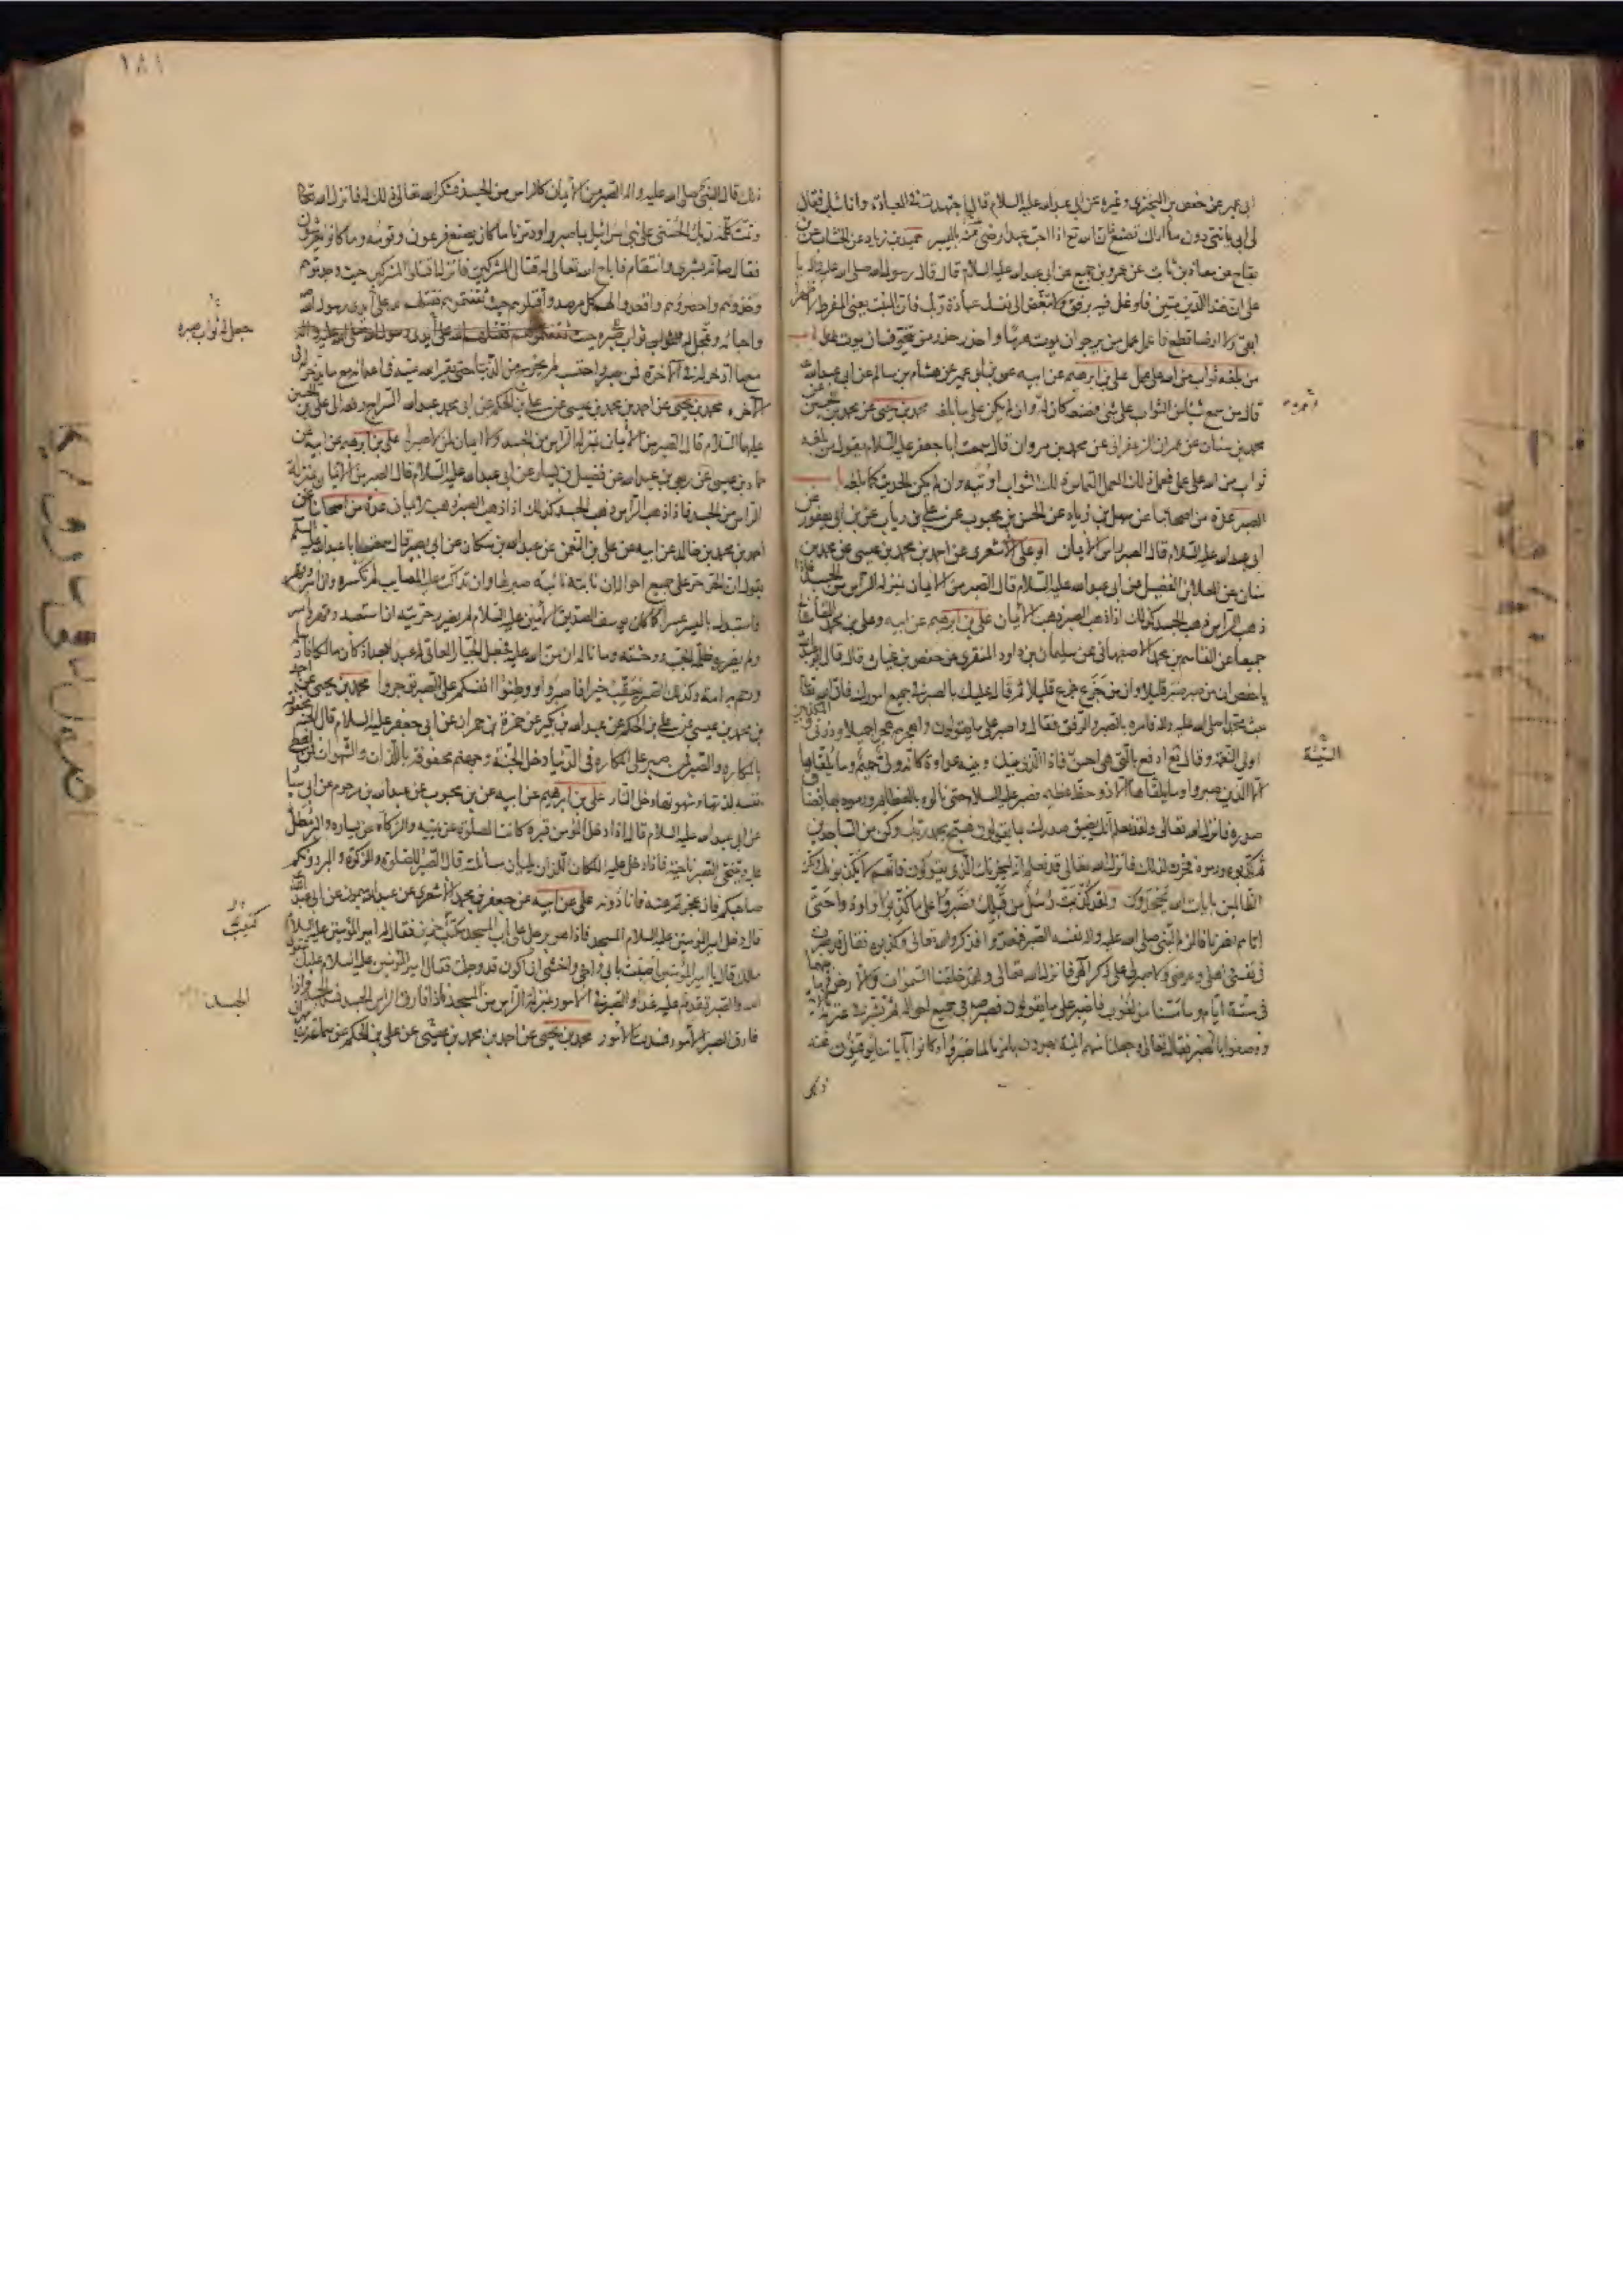 ابي عمير عن حفص بن البختري وغيره عن ابي عبد الله عليه السلام قال اجتهدت في العبادة وانا شاب فقال
لي ابي يا بني دون ما اراك تصنع فان الله تع اذا احب عبدا رضي منه باليسير حميد بن زياد عن الخشاب عن ابن
بقاح عن معاذ بن ثابت عن عمرو بن جميع عن ابي عبد الله عليه السلام قال قال رسول الله صلى الله عليه واله يا
علي ان هذا الدين متين فاوغل فيه برفق ولا تبغض الى نفسك عبادة ربك فان المنبت يعني المفرط لا ظهرا
ابقى ولا ارضا قطع فاعمل عمل من يرجو ان يموت هرما واحذر حذر من يتخوف ان يموت غدا باب
من بلغه ثواب من الله على عمل علي بن ابرهيم عن ابيه عن بن ابي عمير عن هشام بن سالم عن ابي عبد الله
قال من سمع شيئا من الثواب على شئ فصنعه كان له وان لم يكن على ما بلغه محمد بن يحيى عن محمد بن الحسين عن
محمد بن سنان عن عمران الزعفراني عن محمد بن مروان قال سمعت ابا جعفر عليه السلام يقول من بلغه
ثواب من الله على عمل فعمل ذلك العمل التماس ذلك الثواب اوتيه وان لم يكن الحديث كما بلغه باب
الصبر عدة من اصحابنا عن سهل بن زياد عن الحسن بن محبوب عن علي بن رياب عن بن ابي يعفور عن
ابي عبد الله عليه السلام قال الصبر راس الايمان ابو علي الاشعري عن احمد بن محمد بن عيسى عن محمد بن
سنان عن العلا بن الفضيل عن ابي عبد الله عليه السلام قال الصبر من الايمان بمنزلة الراس من الجسد فاذا
ذهب الراس ذهب الجسد كذلك اذا ذهب الصبر ذهب الايمان علي بن ابرهيم عن ابيه وعلي بن محمد القاساني
جميعا عن القاسم بن محمد الاصفهاني عن سليمان بن داود المنقري عن حفص بن غياث قال قال ابو عبد الله
يا حفص ان من صبر صبر قليلا وان من جزع جزع قليلا ثم قال عليك بالصبر في جميع امورك فان الله تعا
بعث محمدا صلى الله عليه واله فامره بالصبر والرفق فقال واصبر على ما يقولون واهجرهم هجرا جميلا وذرني والمكذبين
اولي النعمة وقال تع ادفع بالتي هي احسن فاذا الذي بينك وبينه عداوة كانه ولي حميم وما يلقيها
الا الذين صبروا وما يلقاها الا ذو حظ عظيم فصبر عليه السلام حتى نالوه بالعظائم ورموه بها فضاق
صدره فانزل الله تعالى ولقد نعلم انك يضيق صدرك بما يقولون فسبح بحمد ربك وكن من الساجدين
ثم كذبوه ورموه فحزن لذلك فانزل الله تعالى قد نعلم انه ليحزنك الذي يقولون فانهم لا يكذبونك ولكن
الظالمين بايات الله يجحدون ولقد كذبت رسل من قبلك فصبروا على ما كذبوا واوذوا حتى
اتاهم نصرنا فالزم النبي صلى الله عليه واله نفسه الصبر فتعدوا فذكروا الله تعالى وكذبوه فقال قد صبرت
في نفسي واهلي وعرضي ولا صبر لي على ذكر الهي فانزل الله تعالى ولقد خلقنا السموات والارض وما بينهما
في ستة ايام وما مسنا من لغوب فاصبر على ما يقولون فصبر في جميع احواله ثم بشر في عترته
ووصفوا بالصبر فقال تعالى وجعلنا منهم ائمة يهدون بامرنا لما صبروا وكانوا باياتنا يوقنون فعند
ذلك
النيّة
١٨١
ذلك قال النبي صلى الله عليه واله الصبر من الايمان كالراس من الجسد فشكر الله تعالى ذلك له فانزل الله تعا
وتمت كلمة ربك الحسنى على بني اسرائيل بما صبروا ودمرنا ما كان يصنع فرعون وقومه وما كانوا يعرشون
فقال صلى الله بشرى وانتقام فاباح الله تعالى له قتال المشركين فانزل اقتلوا المشركين حيث وجدتموهم
وخذوهم واحصروهم واقعدوا لهم كل مرصد واقتلوهم حيث ثقفتموهم فقتلهم الله على ايدي رسول الله
واحبائه وعجل له الثواب ثواب صبره حيث ثقفتموهم فقتلهم الله على ايدي رسول الله صلى الله عليه واله
مع ما ادخر له في الاخرة فمن صبر واحتسب لم يخرج من الدنيا حتى يقر الله عينه في اعدائه مع ما يدخر له في
الاخرة محمد بن يحيى عن احمد بن محمد بن عيسى عن علي بن الحكم عن ابي محمد عبد الله السراج رفعه الى علي بن الحسين
عليهما السلام قال الصبر من الايمان بمنزلة الراس من الجسد ولا ايمان لمن لا صبر له علي بن ابرهيم عن ابيه عن
حماد بن عيسى عن ربعي بن عبد الله عن فضيل بن يسار عن ابي عبد الله عليه السلام قال الصبر من الايمان بمنزلة
الراس من الجسد فاذا ذهب الراس ذهب الجسد كذلك اذا ذهب الصبر ذهب الايمان عدة من اصحابنا عن
احمد بن محمد بن خالد عن ابيه عن علي بن النعمن عن عبد الله بن مسكان عن ابي بصير قال سمعت ابا عبد الله عليه السلم
يقول ان الحر حر على جميع احواله ان نابته نائبة صبر لها وان تداكت عليه المصايب لم تكسره وان اسر وقهر
واستبدل باليسر عسرا كما كان يوسف الصديق الامين عليه السلام لم يضرر حريته ان استعبد وقهر واسر
ولم يضرره ظلمة الجب ووحشته وما ناله ان من الله عليه فجعل الجبار العاتي له عبدا بعد اذ كان مالكا فارسله
ورحم به امة وكذلك الصبر يعقب خيرا فاصبروا ووطنوا انفسكم على الصبر توجروا محمد بن يحيى عن احمد
بن محمد بن عيسى عن علي بن الحكم عن عبد الله بن بكير عن حمزة بن حمران عن ابي جعفر عليه السلام قال الجنة محفوفة
بالمكاره والصبر فمن صبر على المكاره في الدنيا دخل الجنة وجهنم محفوفة باللذات والشهوات فمن اعطى
نفسه لذتها وشهوتها دخل النار علي بن ابرهيم عن ابيه عن بن محبوب عن عبد الله بن مرحوم عن ابي سيار
عن ابي عبد الله عليه السلام قال اذا دخل المؤمن قبره كانت الصلوة عن يمينه والزكاة عن يساره والبر مطل
عليه ويتنحى الصبر ناحية فاذا دخل عليه الملكان اللذان يليان مسائلته قال الصبر للصلوة والزكوة والبر دونكم
صاحبكم فان عجزتم عنه فانا دونه علي عن ابيه عن جعفر بن محمد الاشعري عن عبد الله بن ميمون عن ابي عبد الله
قال دخل امير المؤمنين عليه السلام المسجد فاذا هو برجل على باب المسجد مكتئب حزين فقال له امير المؤمنين عليه السلام
مالك قال يا امير المؤمنين اصبت بابي واخي واخشى ان اكون قد وجلت فقال له امير المؤمنين عليه السلام عليك بتقوى
الله والصبر تقدم عليه غدا والصبر في الامور بمنزلة الراس من الجسد فاذا فارق الراس الجسد فسد الجسد واذا
فارق الصبر الامور فسدت الامور محمد بن يحيى عن احمد بن محمد بن عيسى عن علي بن الحكم عن سماعة بن مهران
جعل له ثواب صبره
كئيب
الجسد